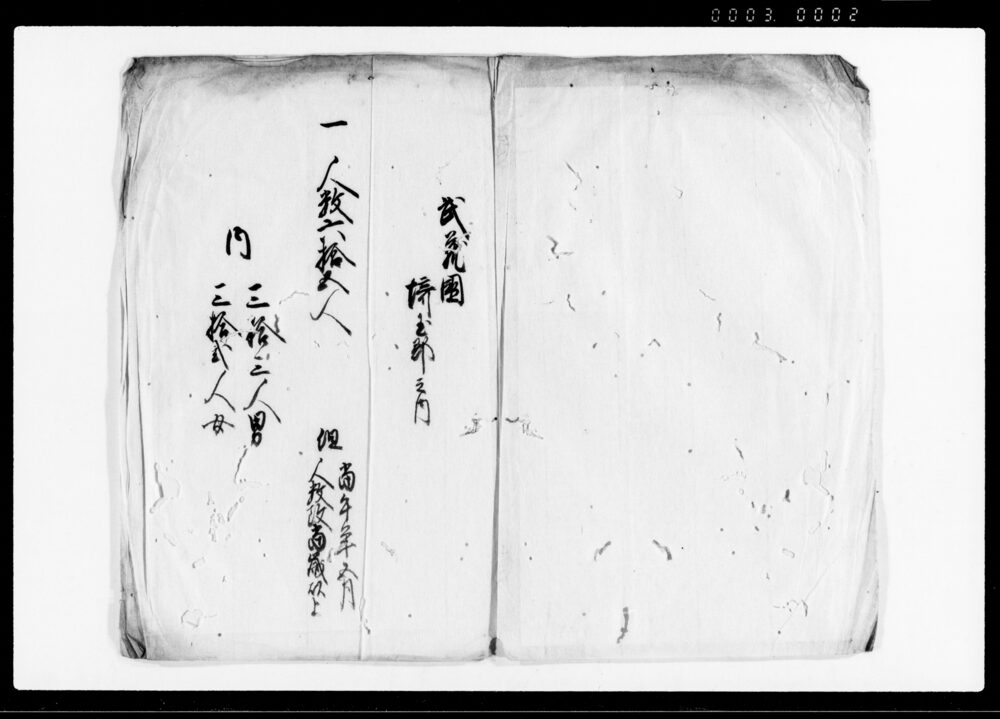 0003. 0002
武蔵国
埼玉郡之内
一 人数六拾五人
但 当午年五月
人数改当歳以上
内
三拾三人男
三拾弐人女